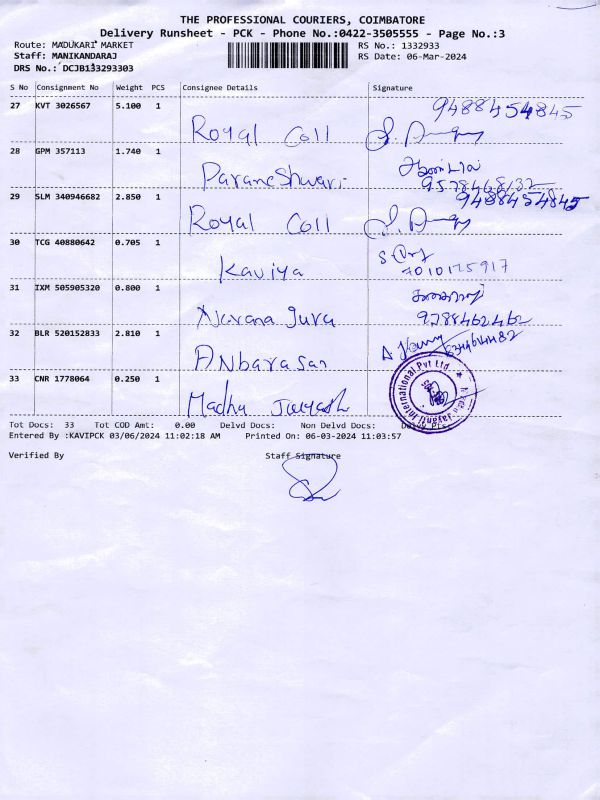 THE PROFESSIONAL COURIERS, COIMBATORE
Delivery Runsheet - PCK - Phone No.:0422-3505555 - Page No.:3
Route: MADUKARI MARKET
Staff: MANIKANDARAJ
DRS No.: DCJB133293303
RS No.: 1332933
RS Date: 06-Mar-2024
S No Consignment No Weight PCS Consignee Details Signature
27 KVT 3026567 5.100 1 Royal Coll 9488454845
28 GPM 357113 1.740 1 Parameshwari 9578468132
29 SLM 340946682 2.850 1 Royal Coll 9488454845
30 TCG 40880642 0.705 1 Kaviya 7010175917
31 IXM 505905320 0.800 1 9788462462
32 BLR 520152833 2.810 1 ANbarasan
33 CNR 1778064 0.250 1 Madhu Jayash
International Pvt Ltd.
Tot Docs: 33 Tot COD Amt: 0.00 Delvd Docs: Non Delvd Docs:
Entered By :KAVIPCK 03/06/2024 11:02:18 AM Printed On: 06-03-2024 11:03:57
Verified By Staff Signature